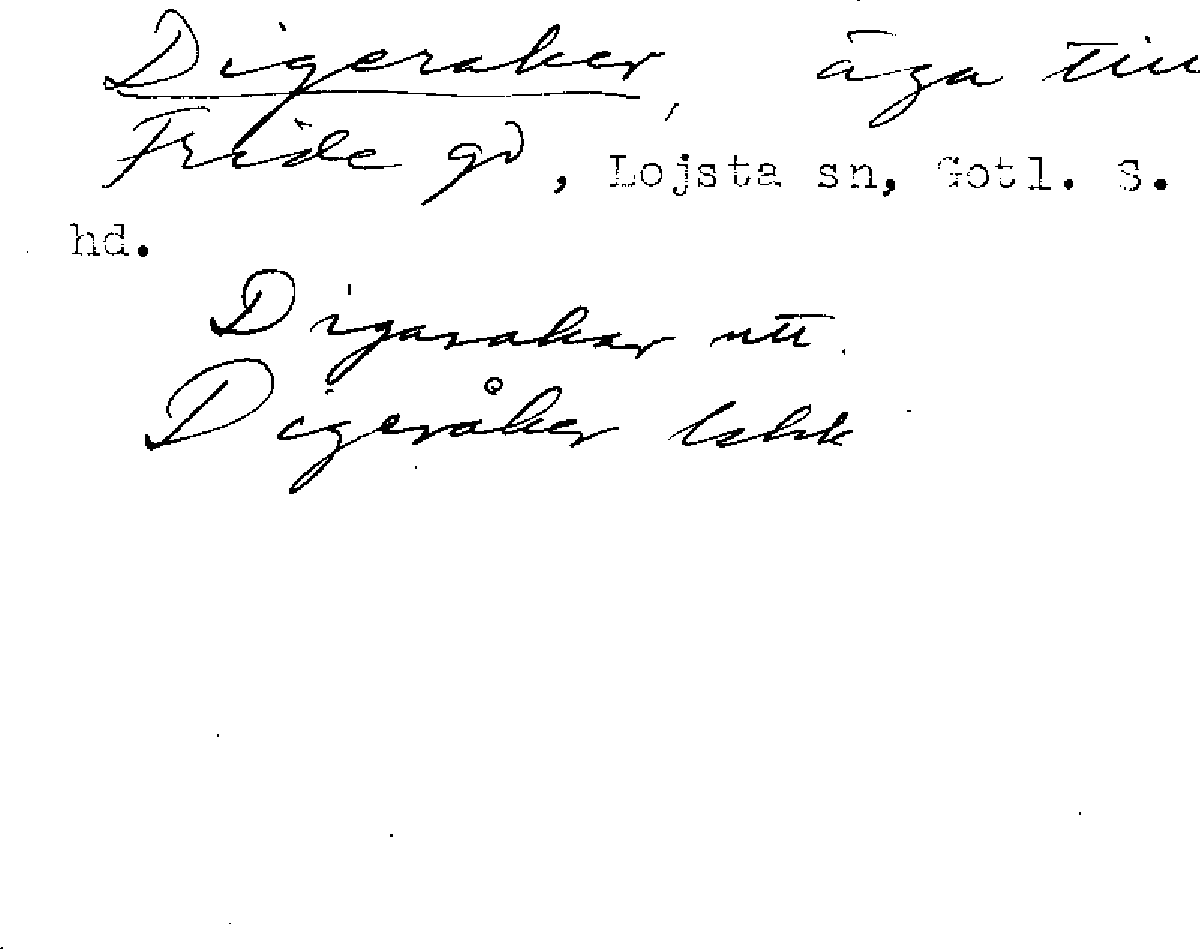 Digeraker, äga till
Fride gd, Lojsta sn, Gotl. S.
hd.
Digarakar utt.
Digeråker lshk